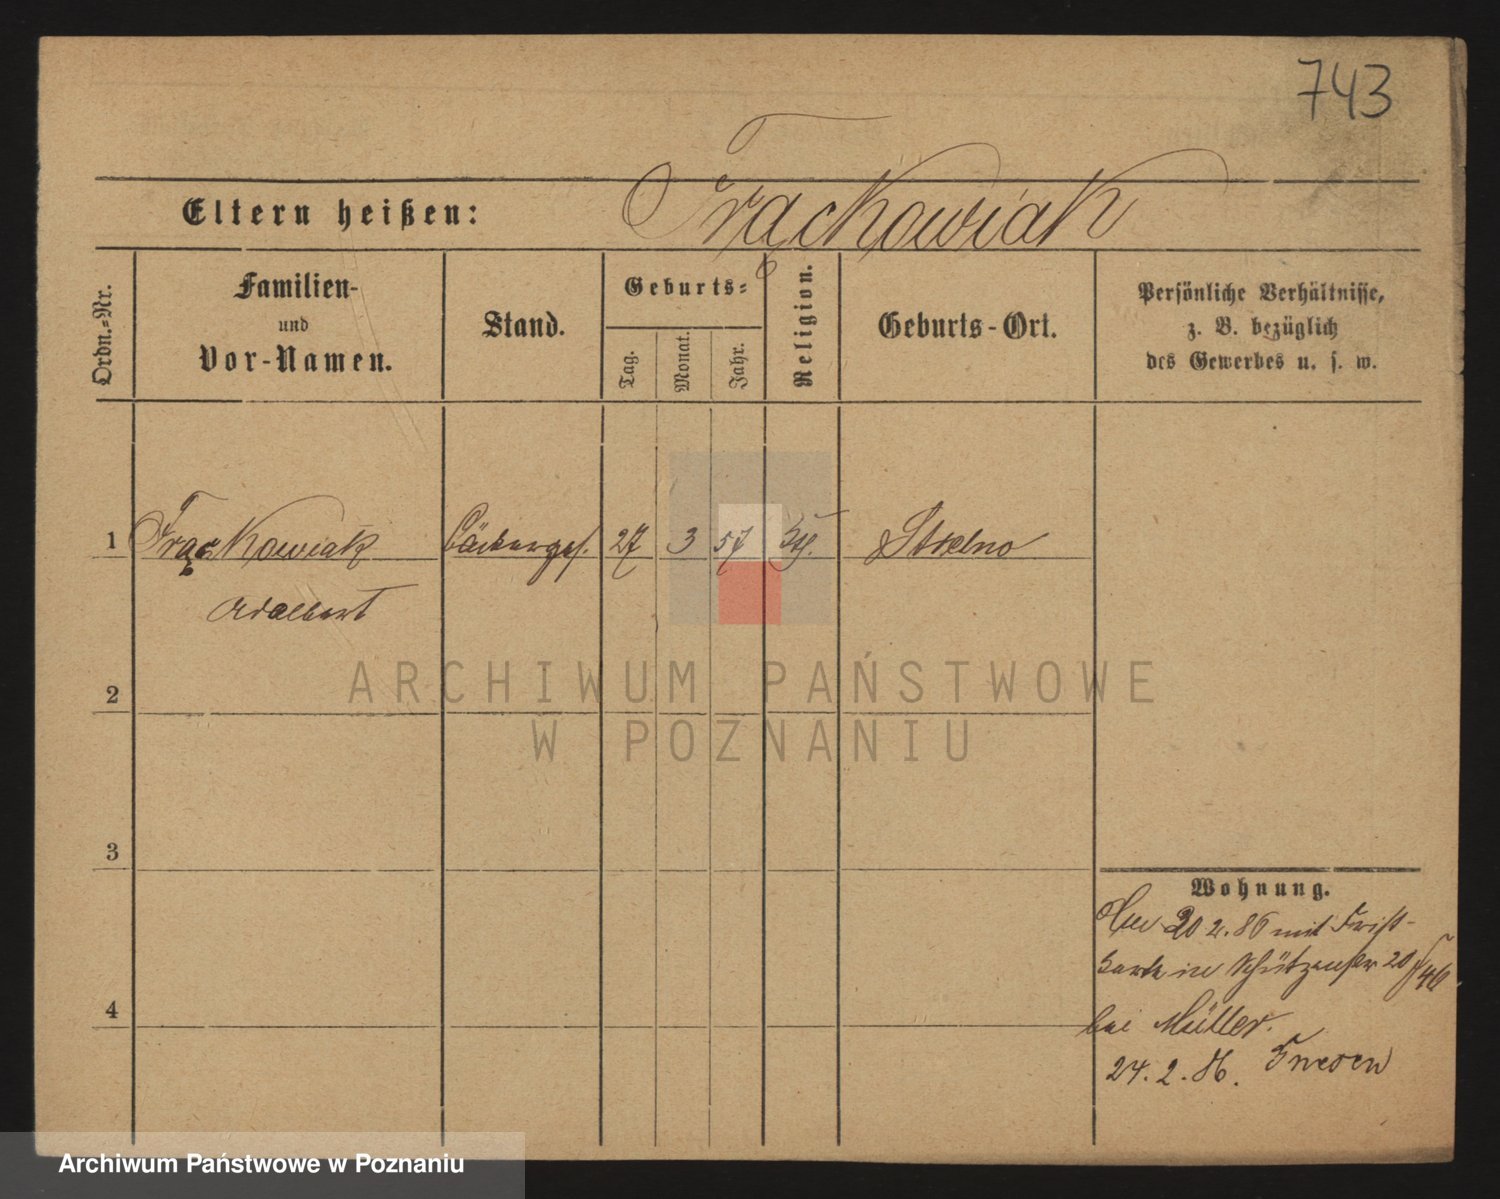 743
Eltern heißen: Frąckowiak
Ordn.-Nr.
Familien- und Vor-Namen.
Stand.
Geburts-
Tag.
Monat.
Jahr.
Religion.
Geburts-Ort.
Persönliche Verhältnisse,
z. B. bezüglich
des Gewerbes u. s. w.
1 Frąckowiak Bäckerges. 27 3 57 kth. Strelno
Adalbert
2
3
4
Wohnung.
20 2. 86 mit Frist-
karte in Schützenstr 20
bei Müller.
24. 2. 86.
ARCHIWUM PAŃSTWOWE
W POZNANIU
Archiwum Państwowe w Poznaniu